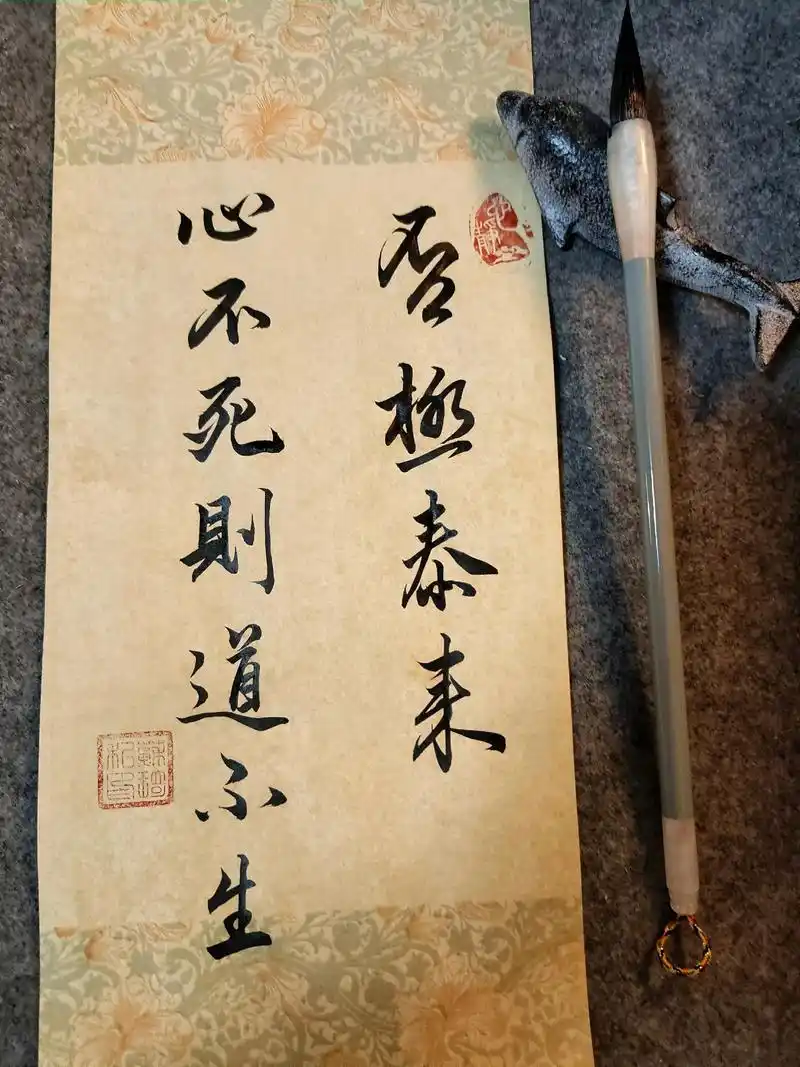 否極泰来
心不死則道不生